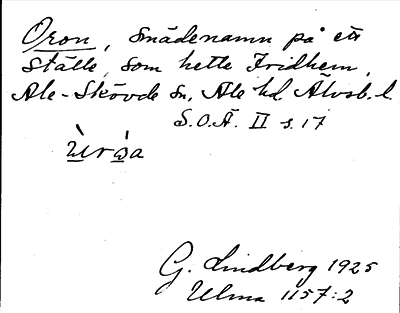 Oron, smädenamn på ett
ställe, som hette Fridhem,
Ale-Skövde sn, Ale hd Älvsb. l.
S.O.Ä. II s. 17
G. Lindberg 1925
Ulma 1157:2